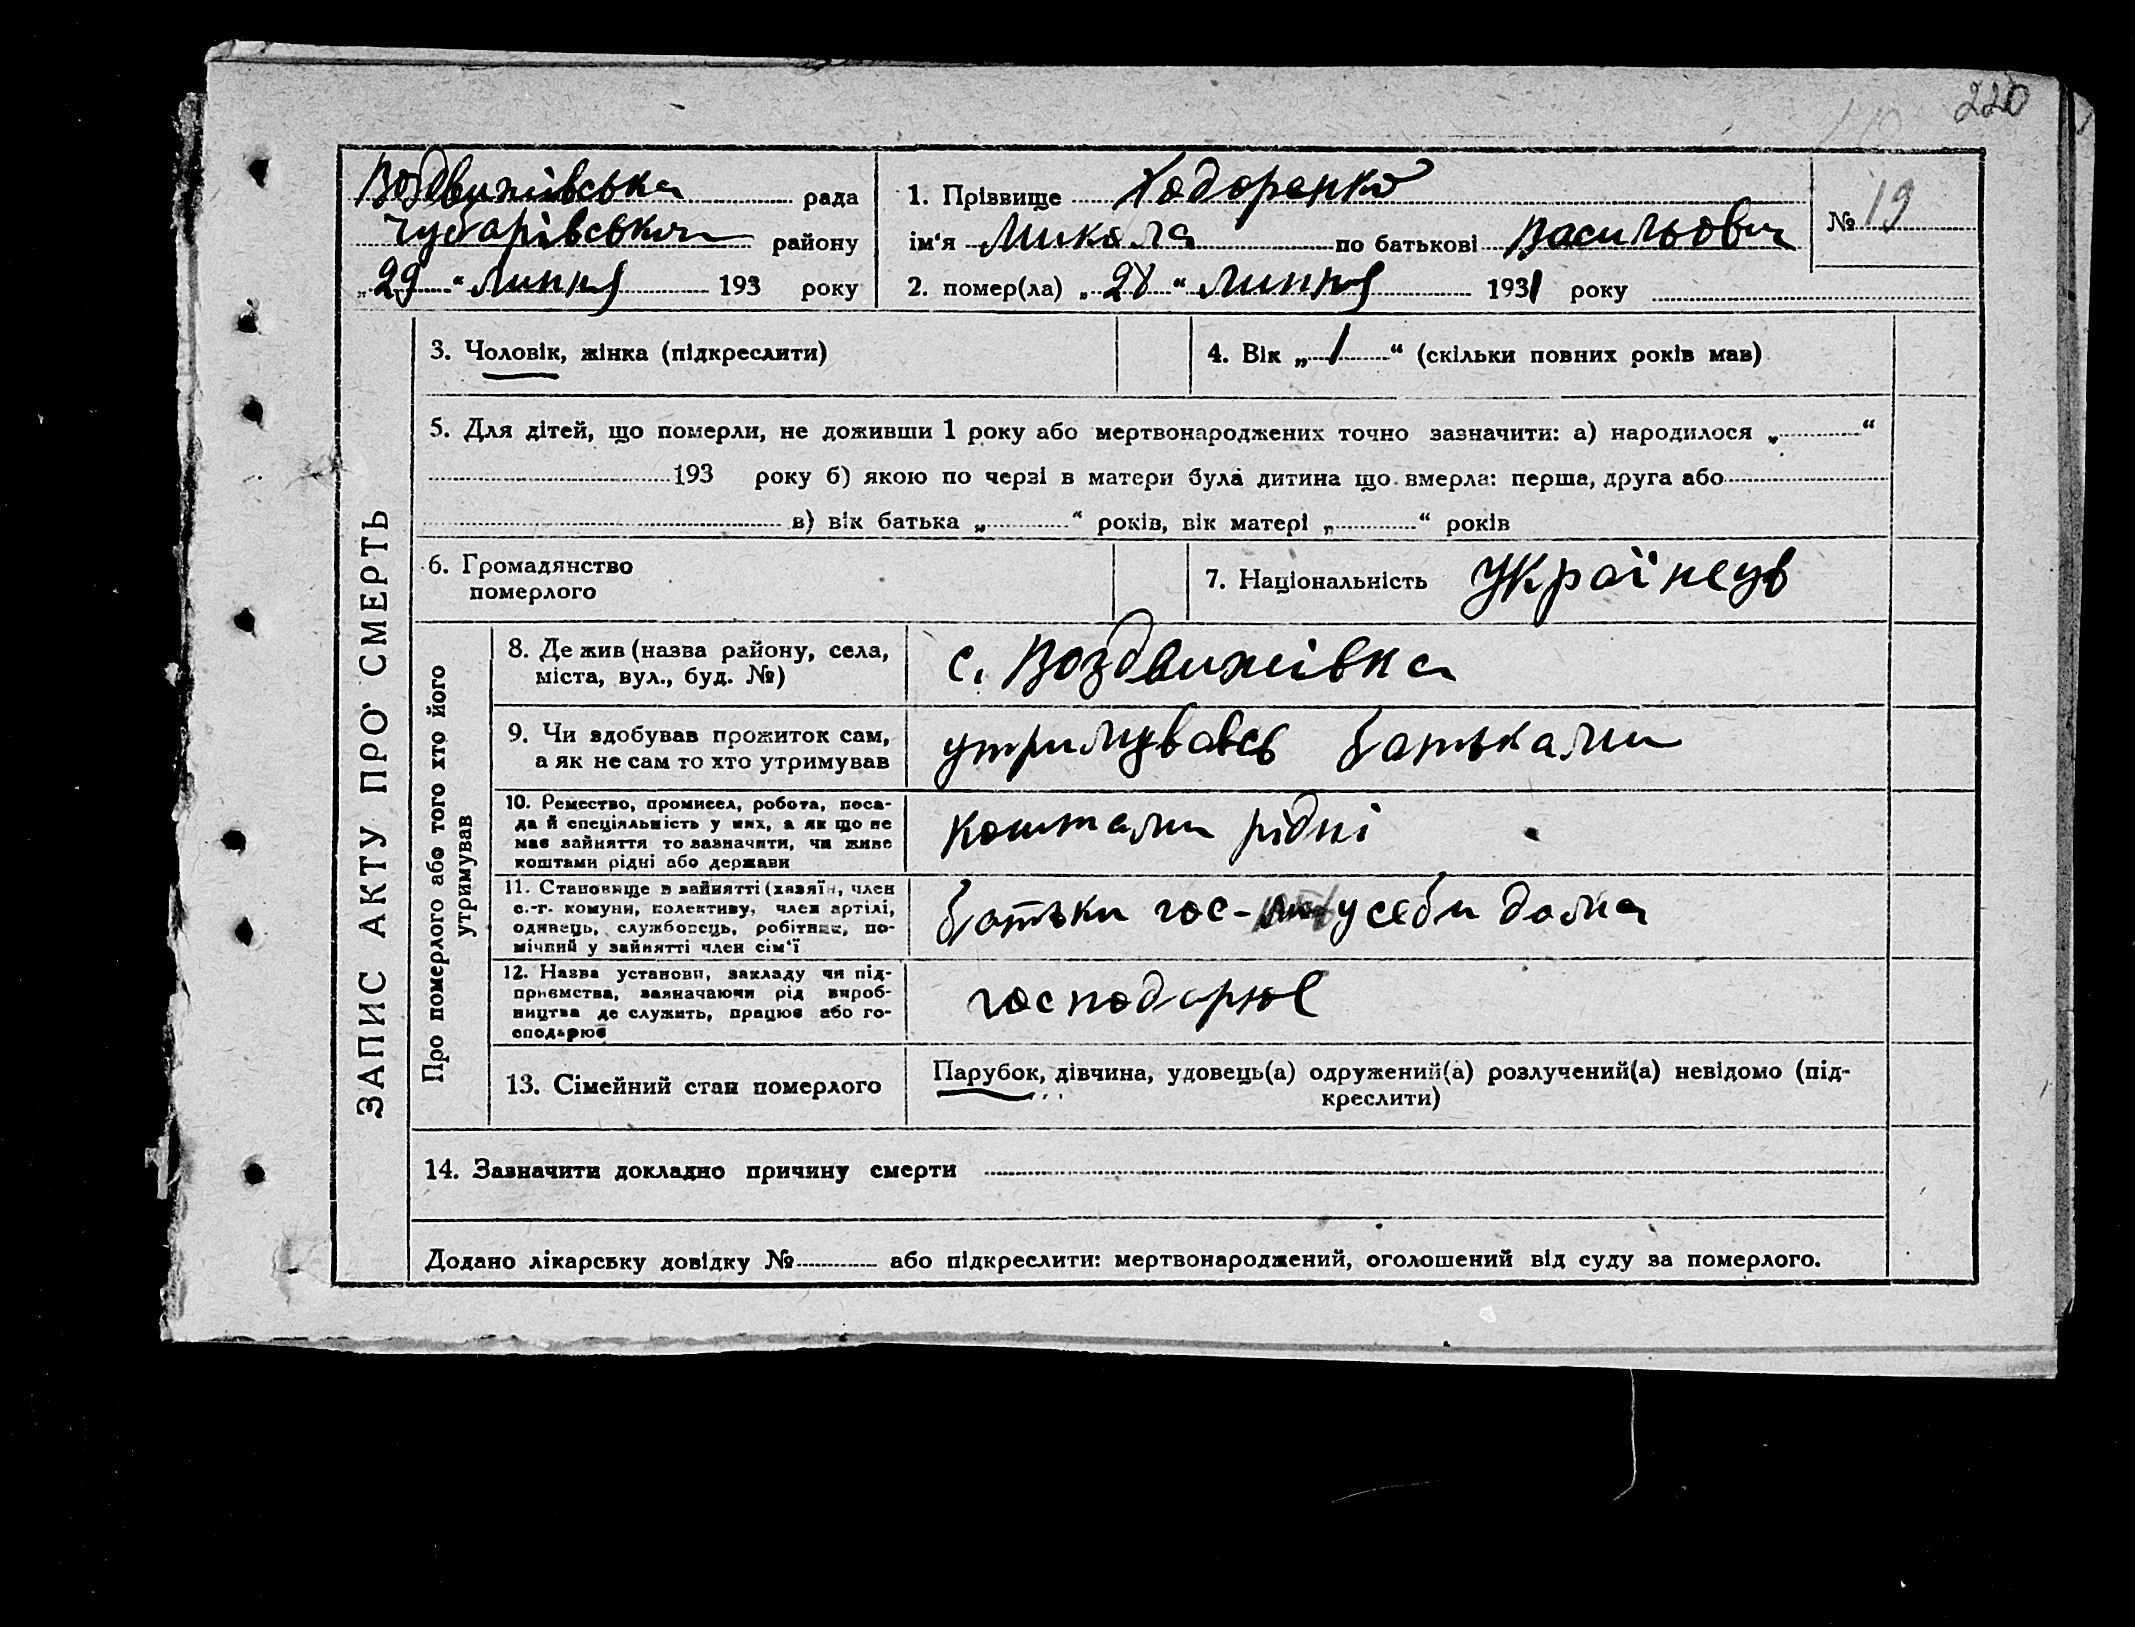 220
Воздвижівська рада
Чубарівського району
„29“ липня 193 року
1. Прізвище Ходоренко
ім‘я Микола по батькові Васильович
2. помер(ла) „28“ липня 1931 року
№ 19
ЗАПИС АКТУ ПРО СМЕРТЬ
3. Чоловік, жінка (підкреслити)
4. Вік „1“ (скільки повних років мав)
5. Для дітей, що померли, не доживши 1 року або мертвонароджених точно зазначити: а) народилося „ “
193 року б) якою по черзі в матери була дитина що вмерла: перша, друга або
в) вік батька „ “ років, вік матері „ “ років
6. Громадянство
померлого
7. Національність Українець
Про померлого або того хто його
утримував
8. Де жив (назва району, села,
міста, вул., буд. №)
с. Воздвижівка
9. Чи здобував прожиток сам,
а як не сам то хто утримував
утримувавсь батьками
10. Ремество, промисел, робота, поса-
да й спеціяльність у них, а як що не
має зайняття то зазначити, чи живе
коштами рідні або держави
коштами рідні
11. Становище в зайнятті (хазяїн, член
с.-г. комуни, колективу, член артілі,
одинець, службовець, робітник, по-
мічний у зайнятті член сім‘ї
батьки гос- у себи дома
12. Назва установи, закладу чи під-
приємства, зазначаючи рід вироб-
ництва де служить, працює або го-
сподарює
господарює
13. Сімейний стан померлого
Парубок, дівчина, удовець(а) одружений(а) розлучений(а) невідомо (під-
креслити)
14. Зазначити докладно причину смерти
Додано лікарську довідку № або підкреслити: мертвонароджений, оголошений від суду за померлого.